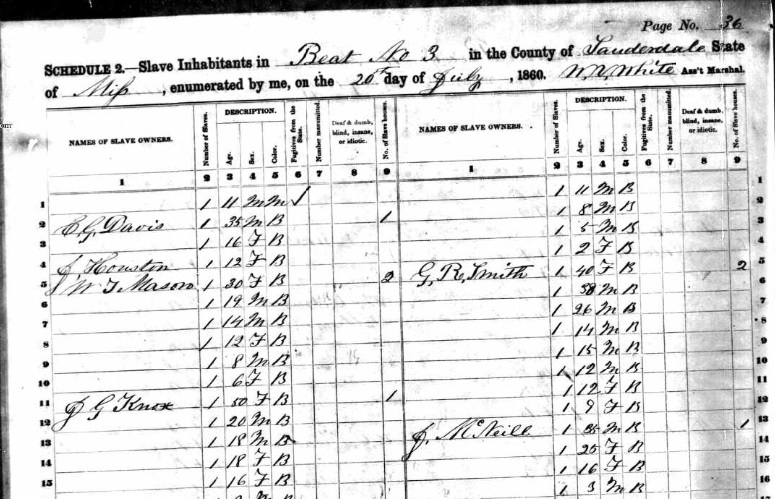 Page No. 36
SCHEDULE 2.—Slave Inhabitants in Beat No 3 in the County of Lauderdale State
of Miss, enumerated by me, on the 20th day of July, 1860. Ass't Marshal.
DESCRIPTION. DESCRIPTION.
NAMES OF SLAVE OWNERS. Number of Slaves. Age. Sex. Color. Fugitives from the State. Number manumitted. Deaf & dumb, blind, insane, or idiotic. No. of Slave houses. NAMES OF SLAVE OWNERS. Number of Slaves. Age. Sex. Color. Fugitives from the State. Number manumitted. Deaf & dumb, blind, insane, or idiotic. No. of Slave houses.
1 2 3 4 5 6 7 8 9 1 2 3 4 5 6 7 8 9
1 1 11 M M 1 1 11 M B 1
2 E. G. Davis 1 35 M B 1 1 8 M B 2
3 1 16 F B 1 5 M B 3
4 J. Houston 1 12 F B 1 2 F B 4
5 W T Mason 1 30 F B 2 G. R. Smith 1 40 F B 2 5
6 1 19 M B 1 38 M B 6
7 1 14 M B 1 26 M B 7
8 1 12 F B 1 14 M B 8
9 1 8 M B 1 15 M B 9
10 1 6 F B 1 12 M B 10
11 J G Knox 1 50 F B 1 1 12 F B 11
12 1 20 M B 1 9 F B 12
13 1 18 M B J. McNeill 1 35 M B 1 13
14 1 18 F B 1 25 F B 14
15 1 16 F B 1 16 F B 15
M B 1 3 M B